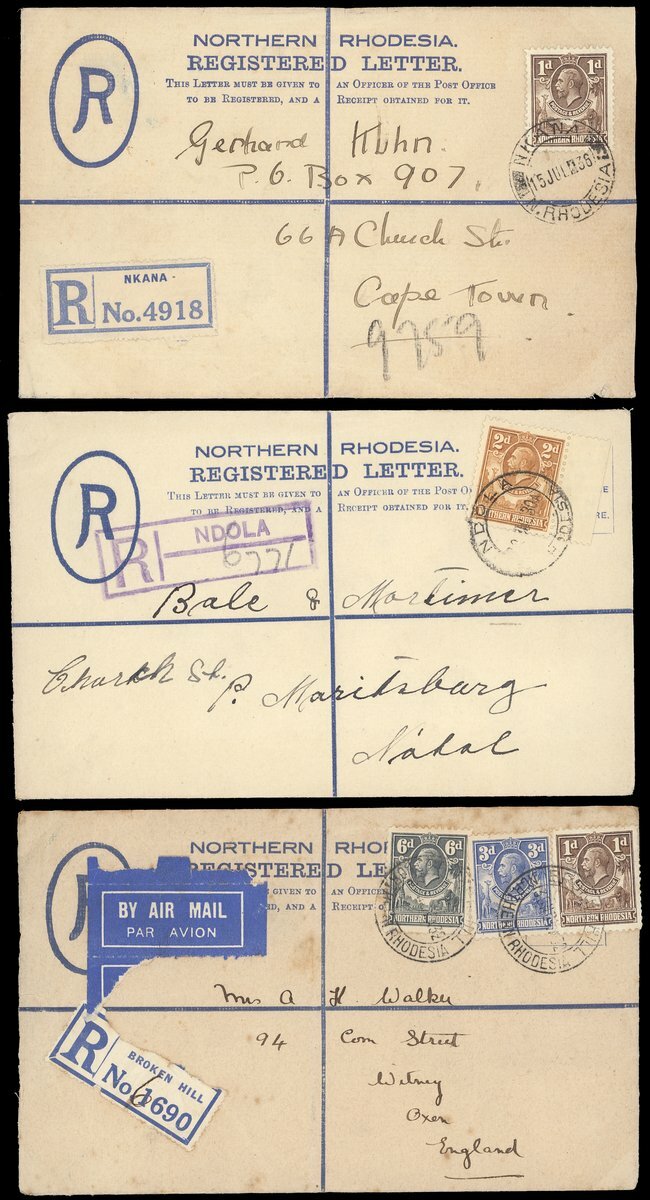 NORTHERN RHODESIA.
REGISTERED LETTER.
THIS LETTER MUST BE GIVEN TO AN OFFICER OF THE POST OFFICE
TO BE REGISTERED, AND A RECEIPT OBTAINED FOR IT.
R
1d 1d
POSTAGE & REVENUE
NORTHERN RHODESIA
NKANA
15 JUL 36
N. RHODESIA
Gerhard Kuhn.
P.O. Box 907,
66A Church St.
Cape Town.
9759
R NKANA
No. 4918
NORTHERN RHODESIA.
REGISTERED LETTER.
THIS LETTER MUST BE GIVEN TO AN OFFICER OF THE POST
TO BE REGISTERED, AND A RECEIPT OBTAINED FOR IT.
R
2d 2d
NORTHERN RHODESIA
NDOLA
R NDOLA
6771
Bale & Mortimer
Church St. P. Maritzburg
Natal
NORTHERN
REGISTERED LE
GIVEN TO AN OFFICE
ED, AND A RECEIPT
6d 6d
NORTHERN RHODESIA
3d 3d
NORTHERN RHODESIA
1d 1d
NORTHERN RHODESIA
N. RHODESIA
N. RHODESIA
BY AIR MAIL
PAR AVION
Mrs A H. Walker
94 Corn Street
Witney
Oxon
England
R BROKEN HILL
No. 1690